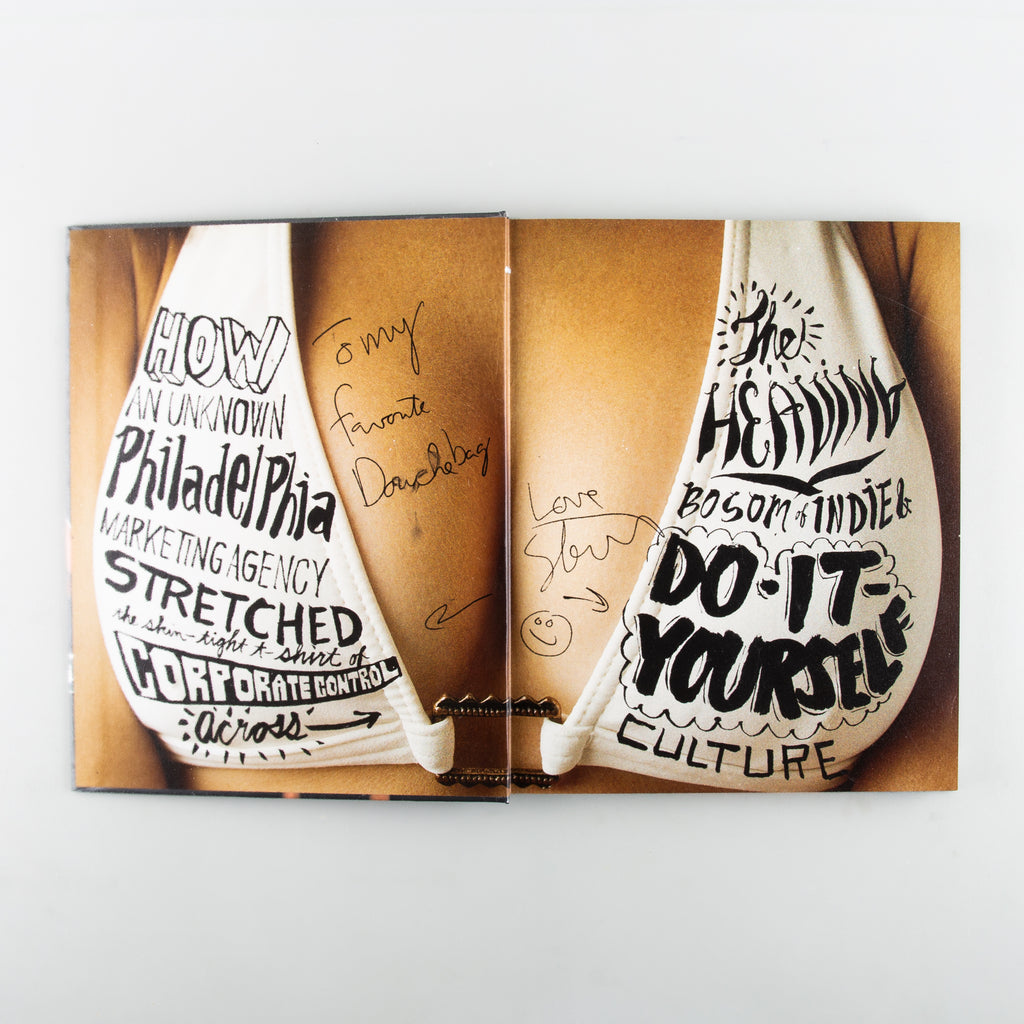 HOW
AN UNKNOWN
PhiladelPhia
MARKETING AGENCY
STRETCHED
the skin-tight t-shirt of
CORPORATE CONTROL
across
To my
favorite
Douchebag
Love
The
HEAVING
BOSOM of INDIE &
DO-IT-
YOURSELF
CULTURE